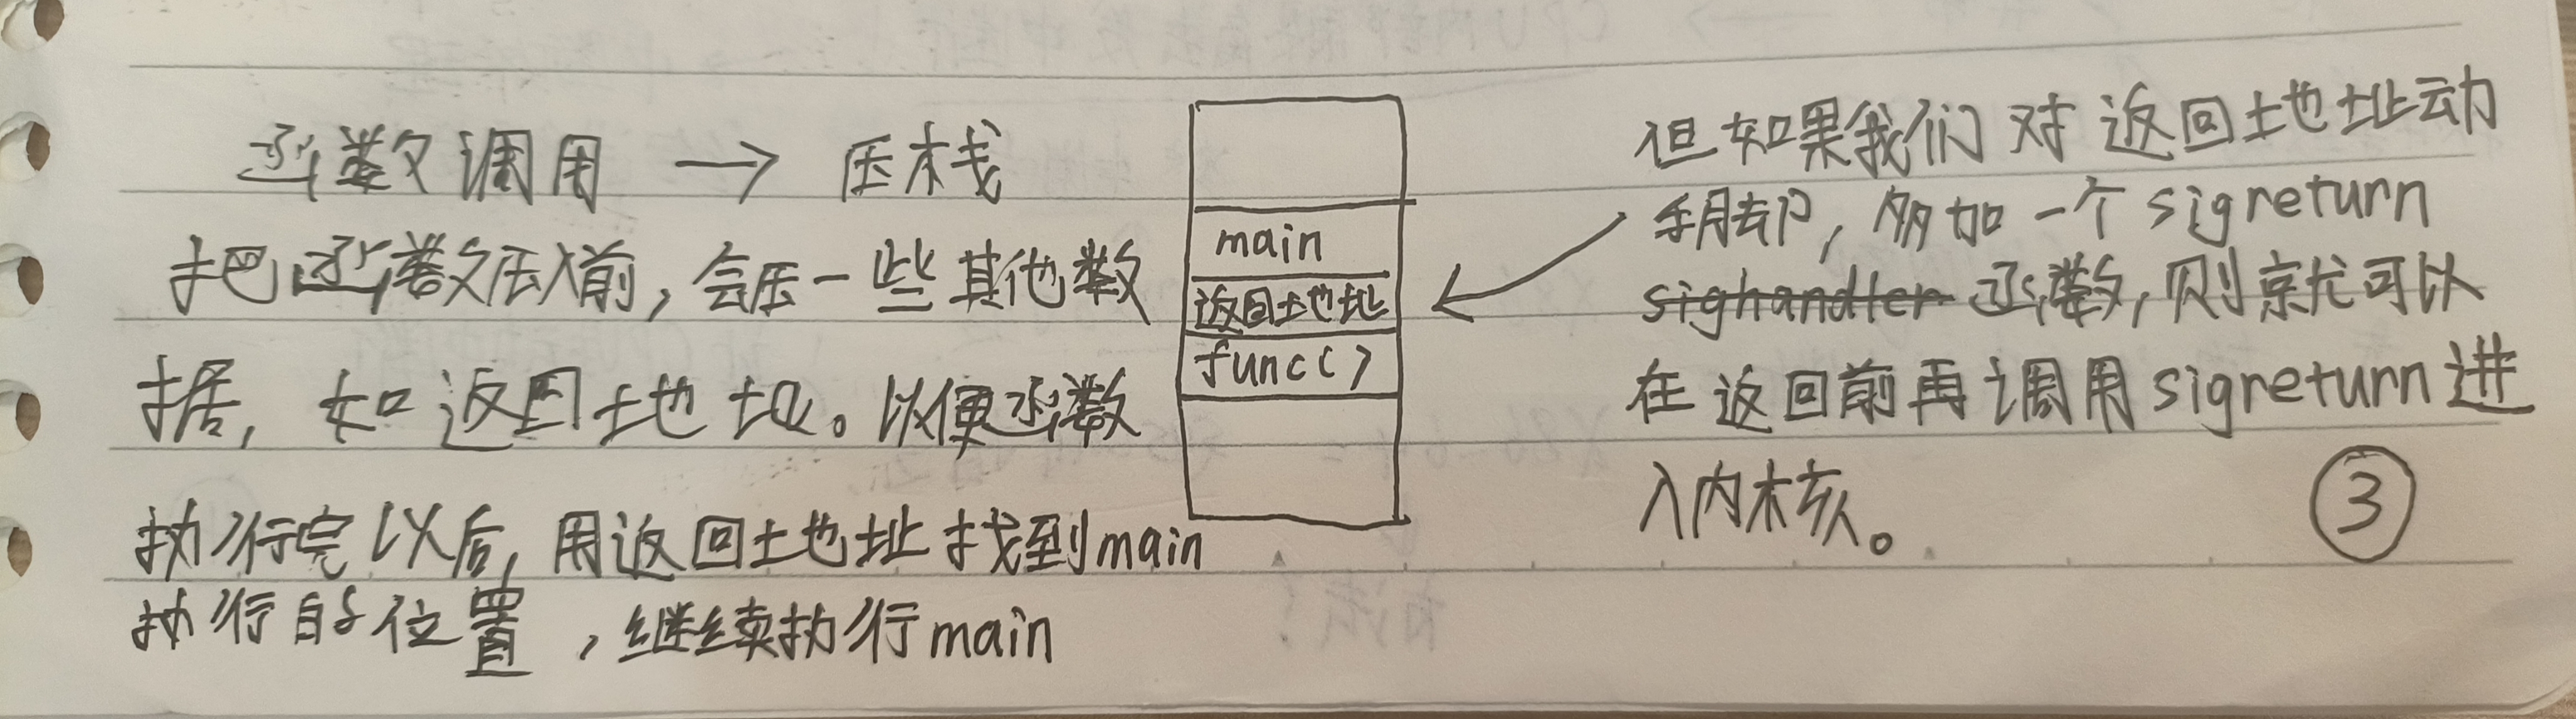 函数调用 → 压栈
把函数压入前，会压一些其他数
据，如返回地址。以便函数
执行完以后，用返回地址找到main
执行的位置，继续执行main
main
返回地址
func()
但如果我们对返回地址动
手脚，多加一个sigreturn
sighandler 函数，则就可以
在返回前再调用sigreturn进
入内核。
③